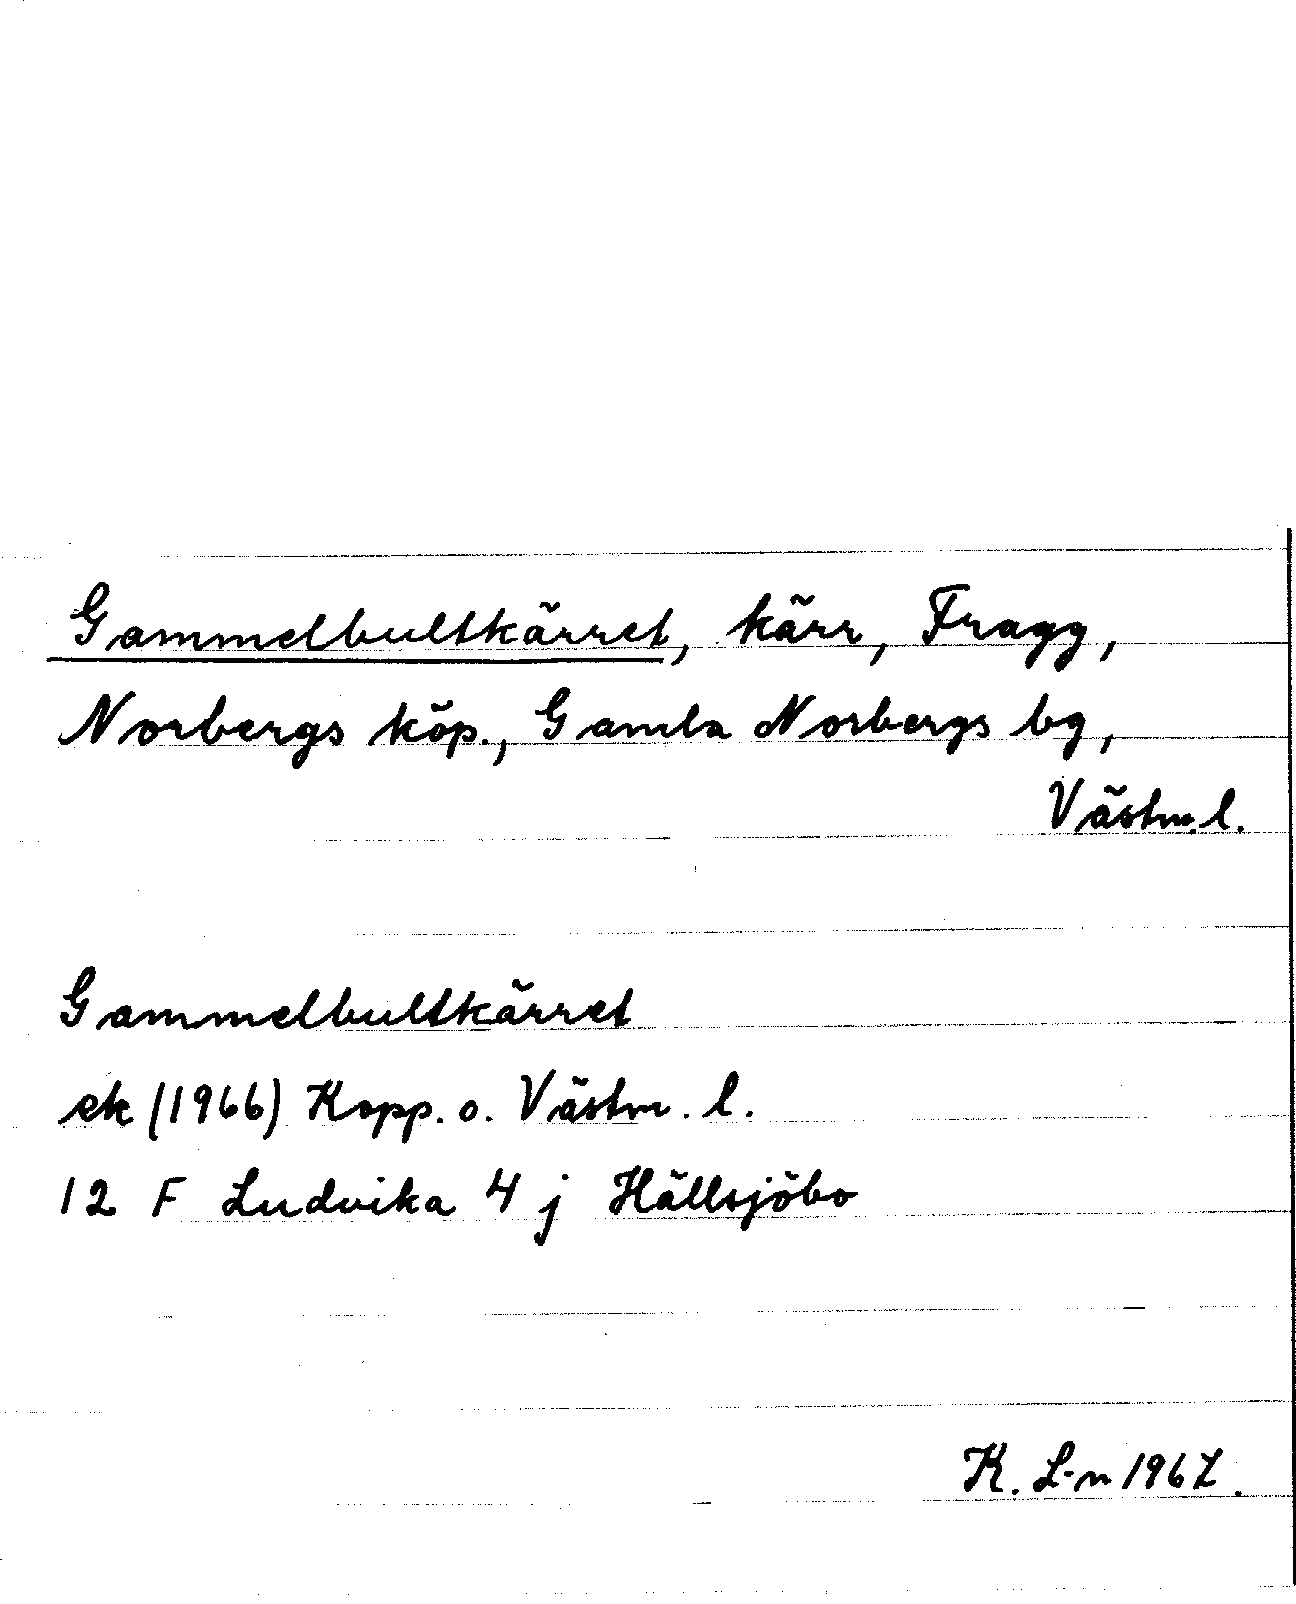 Gammelbultkärret, kärr, Fragg,
Norbergs köp., Gamla Norbergs bg,
Västm.l.
Gammelbultkärret
ek (1966) Kopp. o. Västm. l.
12 F Ludvika 4 j Hällsjöbo
K. L-n 1967.